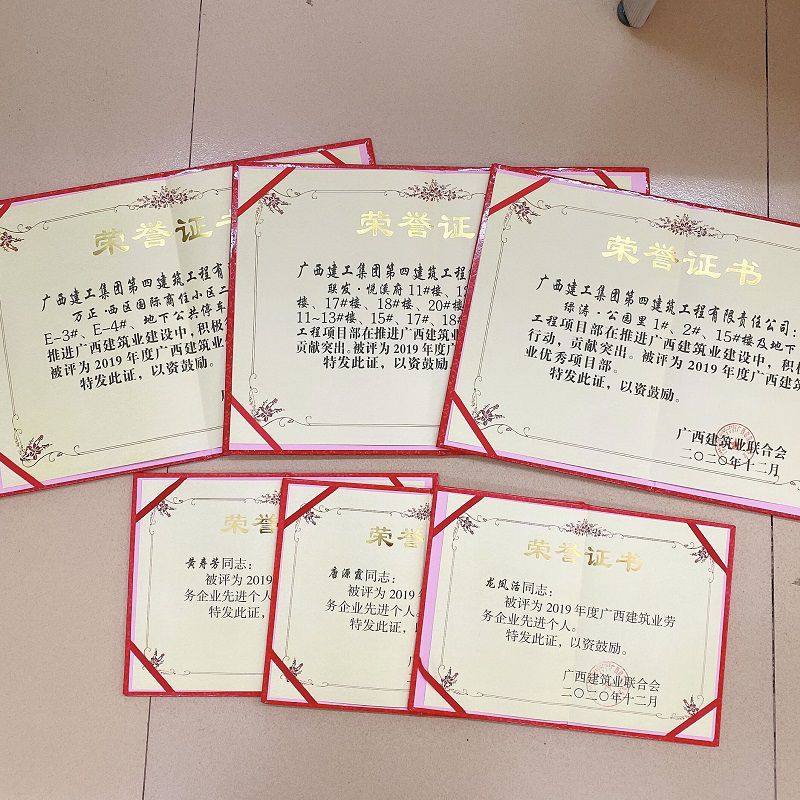 荣誉证书
广西建工集团第四建筑工程有
万正·西区国际商住小区二
E-3#、E-4#、地下公共停车
推进广西建筑业建设中，积极
被评为2019年度广西建筑业
特发此证，以资鼓励。
荣誉证
广西建工集团第四建筑工程
联发·悦溪府11#楼、12
楼、17#楼、18#楼、20#楼
11~13#楼、15#、17#、18#
工程项目部在推进广西建筑
贡献突出。被评为2019年度广
特发此证，以资鼓励
荣誉证书
广西建工集团第四建筑工程有限责任公司：
绿涛·公园里1#、2#、15#楼及地下
工程项目部在推进广西建筑业建设中，积极
行动，贡献突出。被评为2019年度广西建筑
业优秀项目部。
特发此证，以资鼓励。
广西建筑业联合会
二〇二〇年十二月
荣誉
黄寿芳同志：
被评为2019
务企业先进个人
特发此证，
荣誉
唐源霞同志：
被评为2019年
务企业先进个人。
特发此证，以
荣誉证书
龙凤活同志：
被评为2019年度广西建筑业劳
务企业先进个人。
特发此证，以资鼓励。
广西建筑业联合会
二〇二〇年十二月